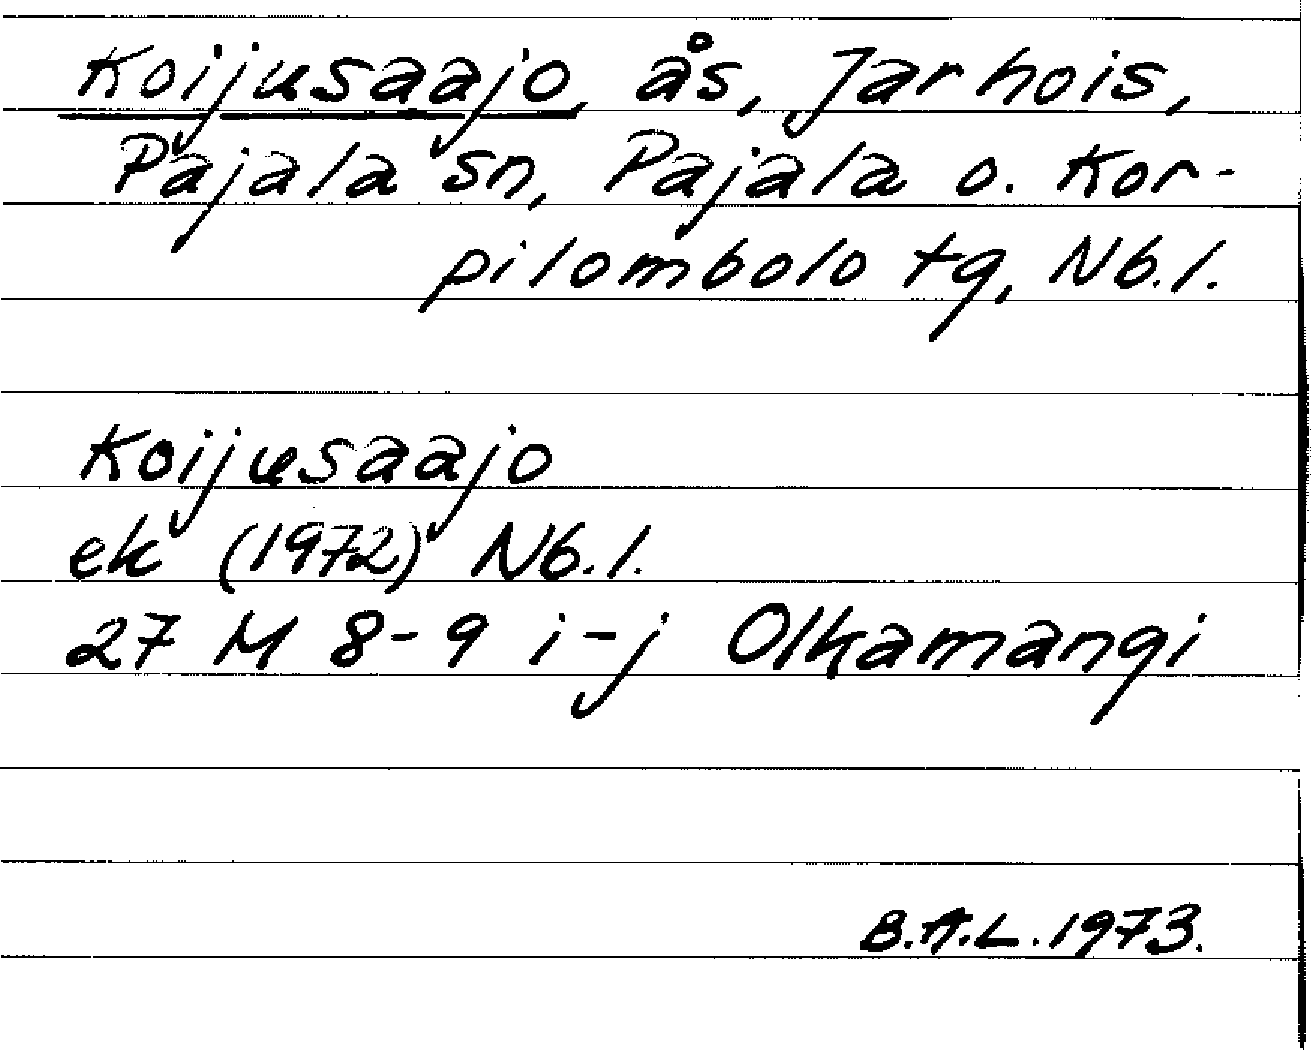 Koijusaajo, ås, Jarhois,
Pajala sn, Pajala o. Kor-
pilombolo tg, Nb.l.
Koijusaajo
ek (1972) Nb.l.
27 M 8-9 i-j Olkamangi
B.A.L. 1973.